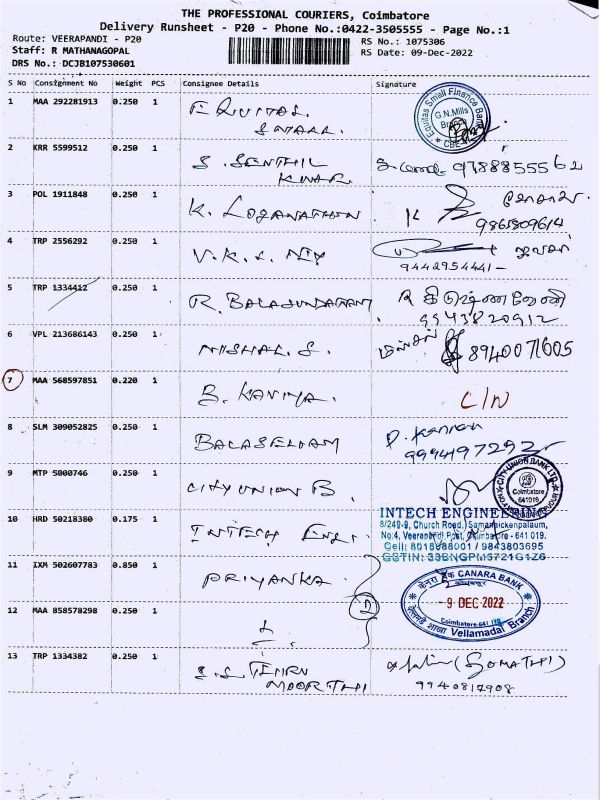 THE PROFESSIONAL COURIERS, Coimbatore
Delivery Runsheet - P20 - Phone No.:0422-3505555 - Page No.:1
Route: VEERAPANDI - P20
RS No.: 1075306
Staff: R MATHANAGOPAL
RS Date: 09-Dec-2022
DRS No.: DCJB107530601
S No Consignment No Weight PCS Consignee Details Signature
1 MAA 292281913 0.250 1 EQUITAS
Equitas Small Finance Bank
G.N.Mills
Branch
2 KRR 5599512 0.250 1 S. SENTHIL 9788855562
KUMAR
3 POL 1911848 0.250 1 K. LOGANATHAN
9865809614
4 TRP 2556292 0.250 1 V.K.S.
9442954441
5 TRP 1334412 0.250 1 R. BALASUNDARAM
9943820912
6 VPL 213686143 0.250 1 NISHAL. S. 8940071605
7 MAA 568597851 0.220 1 B. KAVIYA. C/N
8 SLM 309052825 0.250 1 BALASELVAM P. Kannan
9994197292
9 MTP 5000746 0.250 1 CITY UNION B.
CITY UNION BANK LTD
Coimbatore
641019
10 HRD 50218380 0.175 1 INTECH ENGI.
INTECH ENGINEERING
8/249-9, Church Road, Samanaickenpalaum,
No:4, Veerapandi Post, Coimbatore - 641 019.
Cell: 8015988001 / 9843803695
GSTIN: 33BNGPM5721G1Z6
11 IXM 502607783 0.850 1 PRIYANKA
CANARA BANK
- 9 DEC 2022
Vellamadai Branch
12 MAA 858578298 0.250 1
13 TRP 1334382 0.250 1 S.S. TIMRU (GOMATHI)
MOORTHI 9940817908